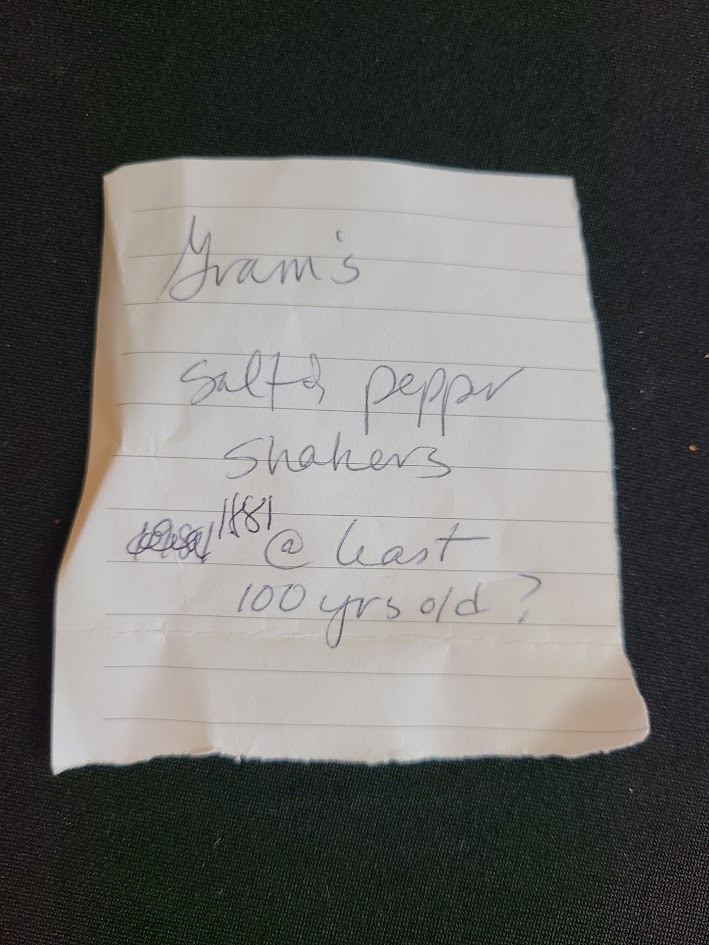 Gram's
Salt & pepper
Shakers
1881 @ least
100 yrs old ?